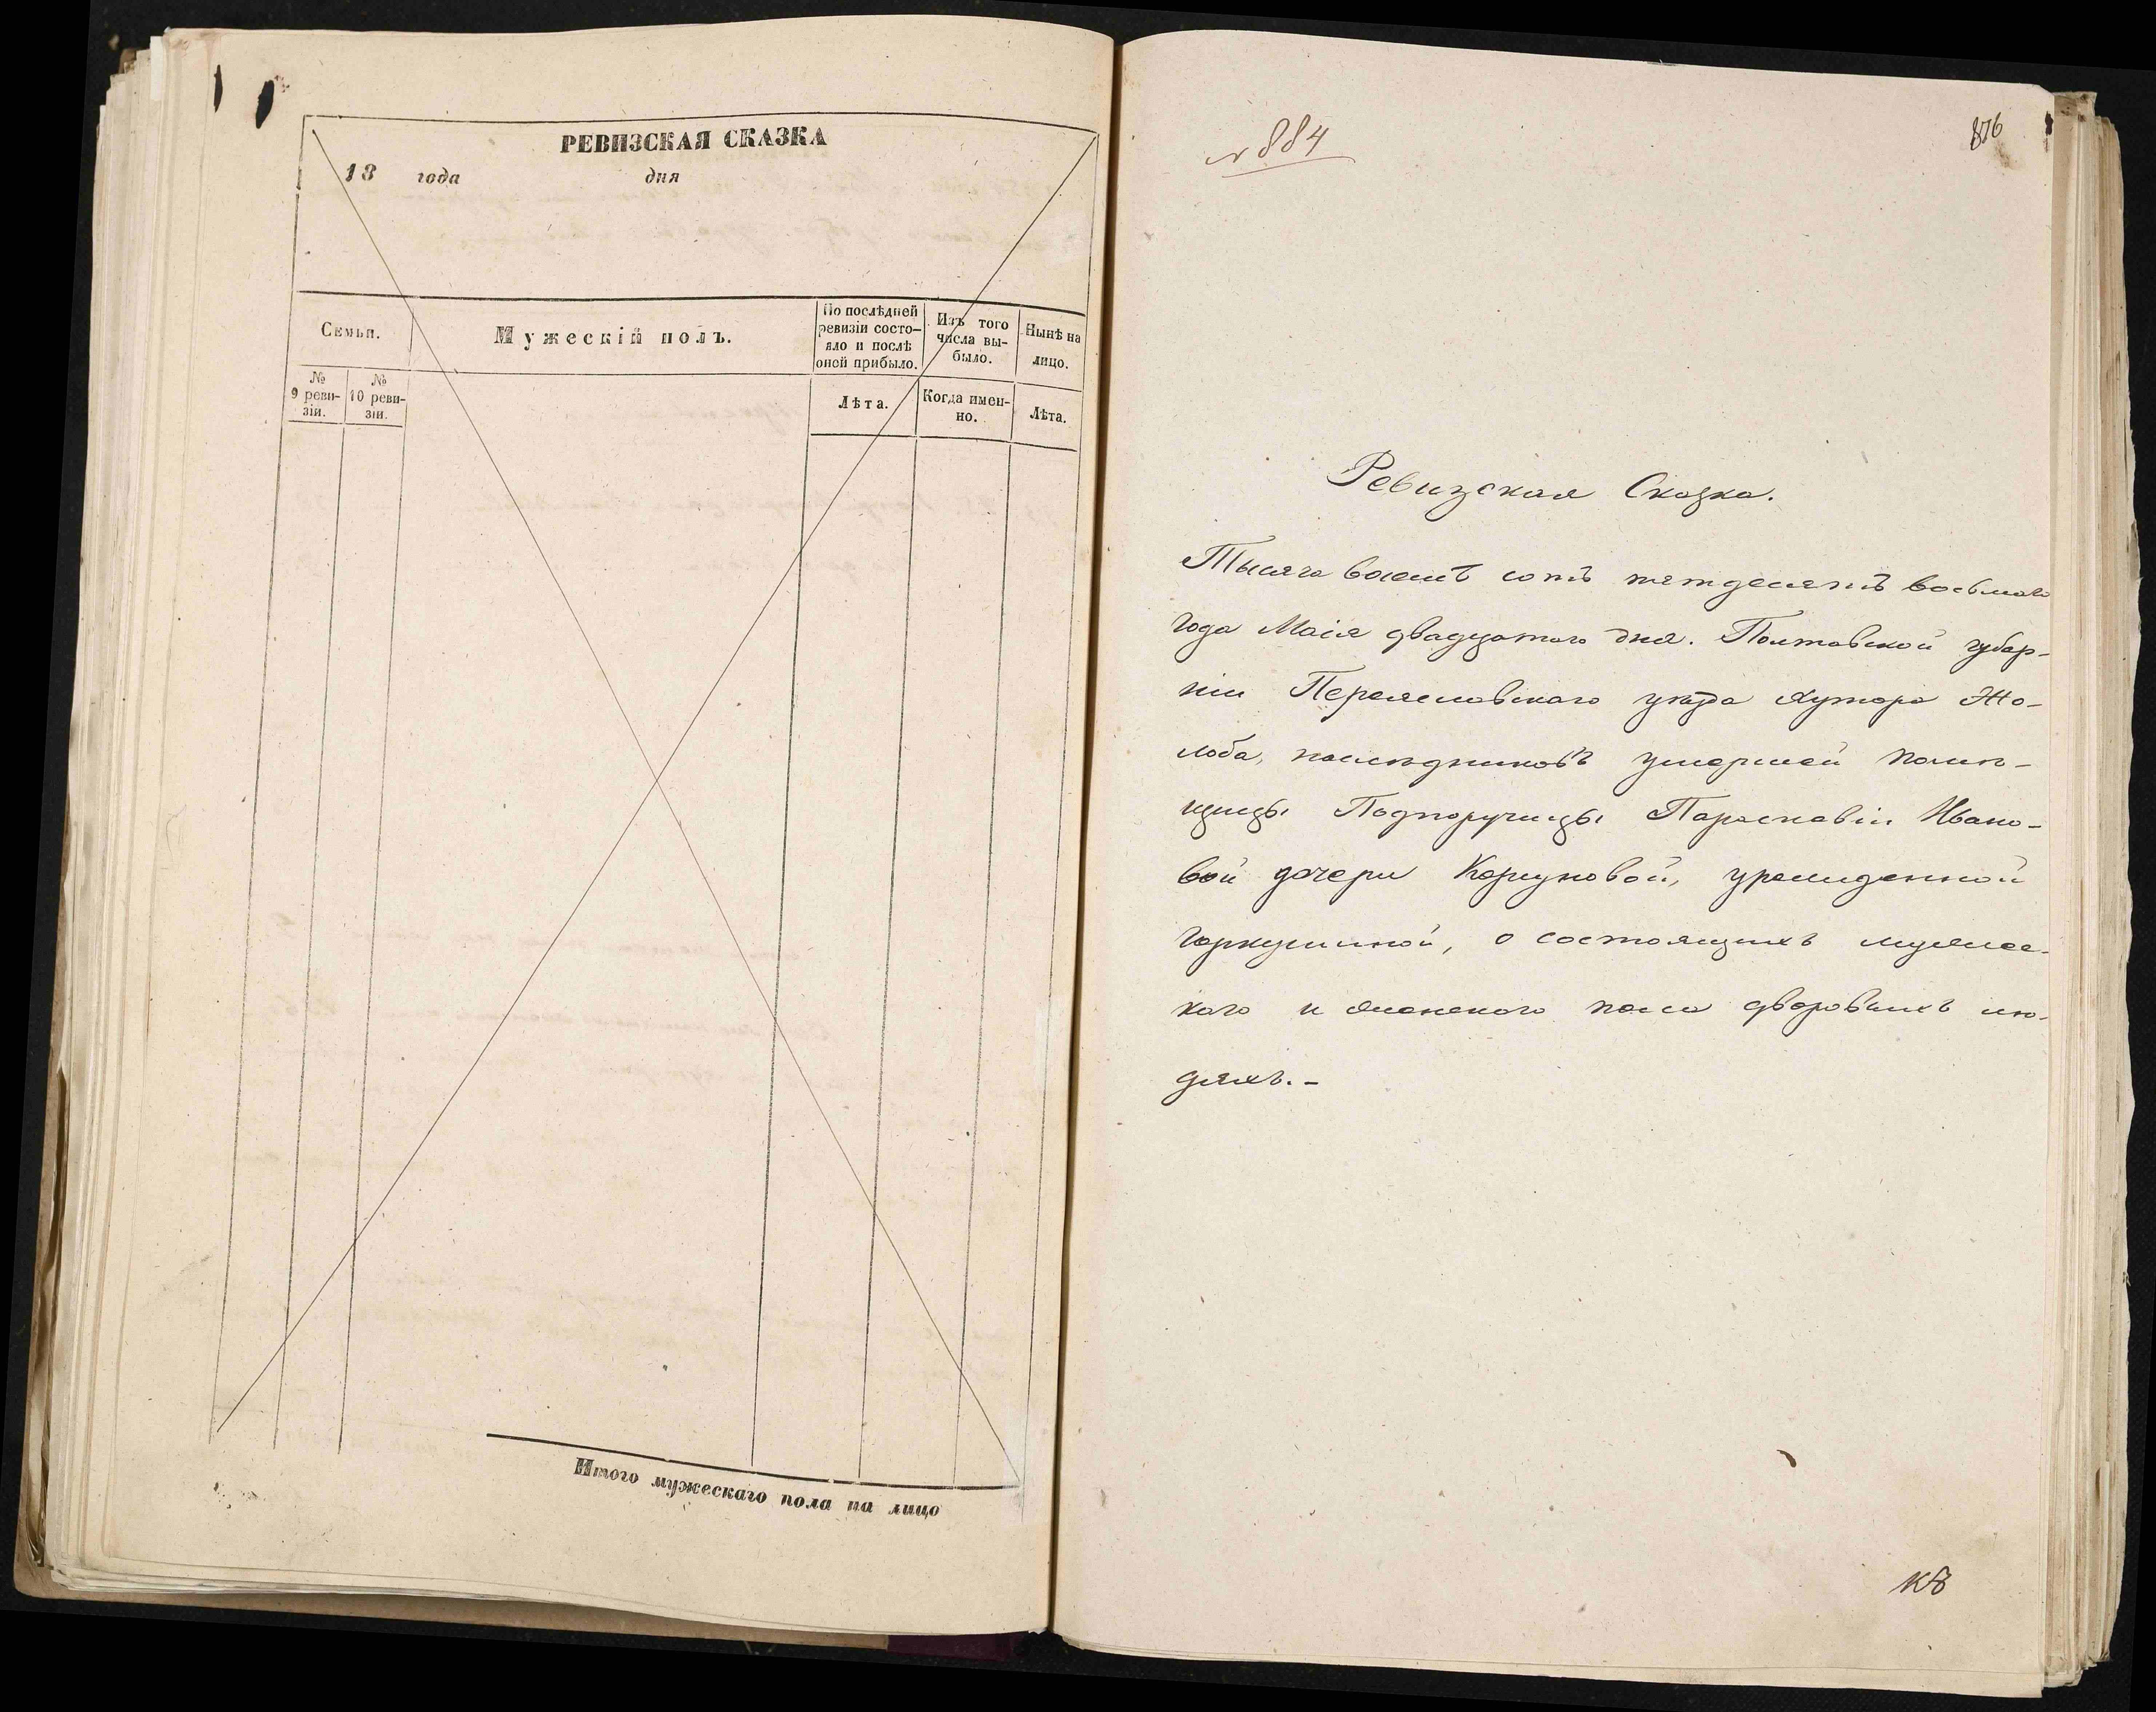 РЕВИЗСКАЯ СКАЗКА
18 года дня
Семьи.
№ 9 реви-зіи.
№ 10 реви-зіи.
Мужескій полъ.
По послѣдней
ревизіи состо-
яло и послѣ
оной прибыло.
Лѣта.
Изъ того
числа вы-
было.
Когда имен-
но.
Нынѣ на
лицо.
Лѣта.
Итого мужескаго пола на лицо
№ 884
876
Ревизская Сказка.
Тысяча восемъ сотъ пятдесятъ восьмаго
года Маія двадцатаго дня. Полтавской губер-
ніи Переяславскаго уѣзда хутора Жо-
лоба, наслѣдниковъ умершей помѣ-
щицы Подпоручицы Параскавіи Ивано-
вой дочери Коршуновой, урожденной
Горкушиной, о состоящихъ мужес-
каго и женскаго пола дворовыхъ лю-
дяхъ.-